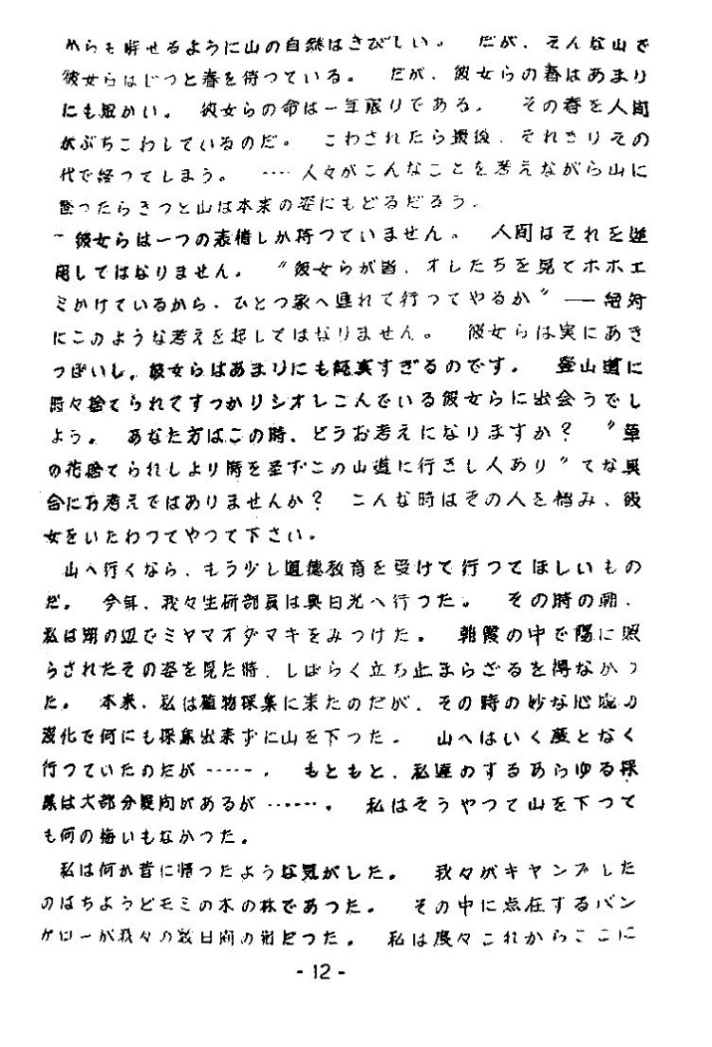 からも解せるように山の自然はきびしい。　だが、そんな山で
彼女らはじつと春を待つている。　だが、彼女らの春はあまり
にも短かい。　彼女らの命は一年限りである。　その春を人間
がぶちこわしているのだ。　こわされたら最後、それきりその
代で終つてしまう。　……人々がこんなことを考えながら山に
登つたらきつと山は本来の姿にもどるだろう。
彼女らは一つの表情しか持つていません。　人間はそれを逆
用してはなりません。　〝彼女らが皆、オレたちを見てホホエ
ミかけているから、ひとつ家へ連れて行つてやるか〞――絶対
にこのような考えを起してはなりません。　彼女らは実にあき
つぽいし、彼女らはあまりにも純真すぎるのです。　登山道に
時々捨てられてすつかりシオレこんでいる彼女らに出会うでし
よう。　あなた方はこの時、どうお考えになりますか？　〝草
の花捨てられしより時を至ずこの山道に行きし人あり〞てな具
合にお考えではありませんか？　こんな時はその人を憎み、彼
女をいたわつてやつて下さい。
山へ行くなら、もう少し道徳教育を受けて行つてほしいもの
だ。　今年、我々生研部員は奥日光へ行つた。　その時の朝、
私は湖の辺でミヤマオダマキをみつけた。　朝霞の中で陽に照
らされたその姿を見た時、しばらく立ち止まらざるを得なかつ
た。　本来、私は植物採集に来たのだが、その時の妙な心境の
変化で何にも採集出来ずに山を下つた。　山へはいく度となく
行つていたのだが……。　もともと、私達のするあらゆる採
集は大部分疑問があるが……。　私はそうやつて山を下つて
も何の悔いもなかつた。
私は何か昔に帰つたような気がした。　我々がキヤンプした
のはちようどモミの木の林であつた。　その中に点在するバン
ガローが我々の数日間の宿だつた。　私は度々これからここに
- 12 -